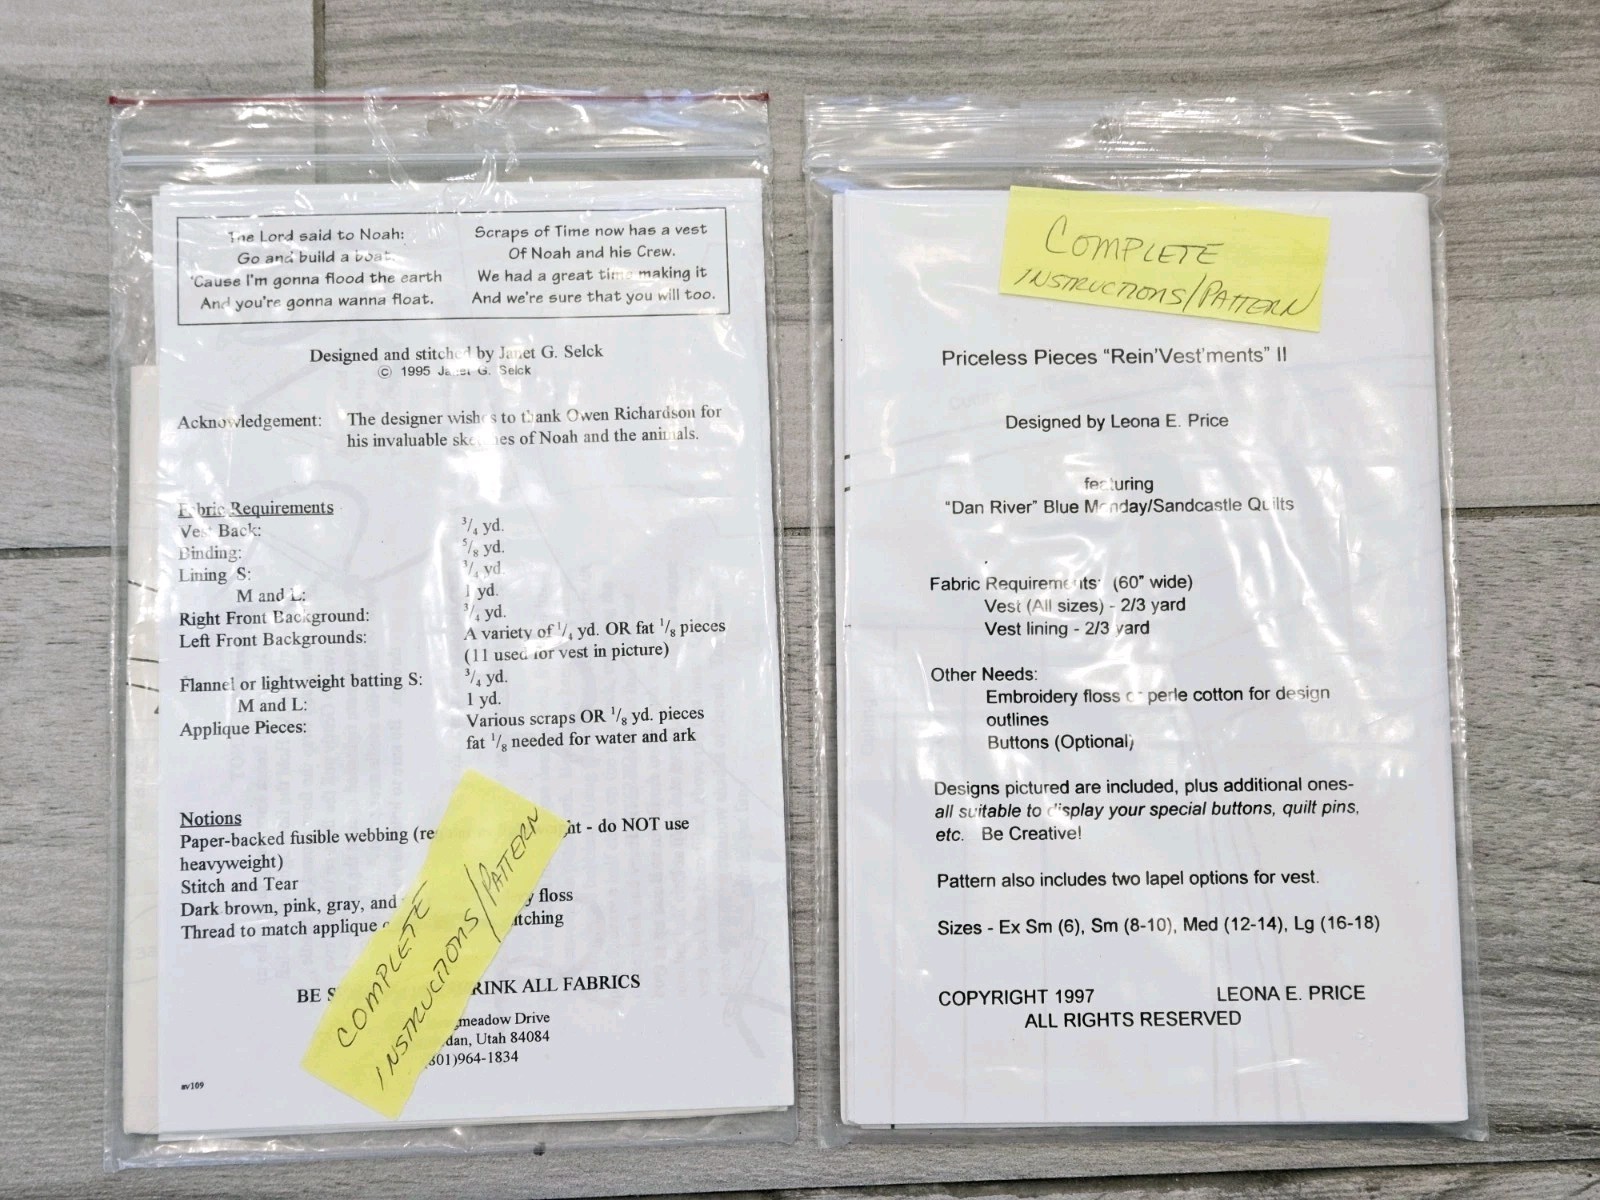 The Lord said to Noah:
Go and build a boat.
'Cause I'm gonna flood the earth
And you're gonna wanna float.
Scraps of Time now has a vest
Of Noah and his Crew.
We had a great time making it
And we're sure that you will too.
Designed and stitched by Janet G. Selck
© 1995 Janet G. Selck
Acknowledgement: The designer wishes to thank Owen Richardson for
his invaluable sketches of Noah and the animals.
Fabric Requirements
Vest Back: 3/4 yd.
Binding: 5/8 yd.
Lining S: 3/4 yd.
M and L: 1 yd.
Right Front Background: 3/4 yd.
Left Front Backgrounds: A variety of 1/4 yd. OR fat 1/8 pieces
(11 used for vest in picture)
Flannel or lightweight batting S: 3/4 yd.
M and L: 1 yd.
Applique Pieces: Various scraps OR 1/8 yd. pieces
fat 1/8 needed for water and ark
Notions
Paper-backed fusible webbing (re ht - do NOT use
heavyweight)
Stitch and Tear
Dark brown, pink, gray, and floss
Thread to match applique tching
BE S RINK ALL FABRICS
meadow Drive
dan, Utah 84084
801)964-1834
mv109
COMPLETE
INSTRUCTIONS/PATTERN
COMPLETE
INSTRUCTIONS/PATTERN
Priceless Pieces “Rein’Vest’ments” II
Designed by Leona E. Price
featuring
“Dan River” Blue Monday/Sandcastle Quilts
Fabric Requirements: (60” wide)
Vest (All sizes) - 2/3 yard
Vest lining - 2/3 yard
Other Needs:
Embroidery floss or perle cotton for design
outlines
Buttons (Optional)
Designs pictured are included, plus additional ones-
all suitable to display your special buttons, quilt pins,
etc. Be Creative!
Pattern also includes two lapel options for vest.
Sizes - Ex Sm (6), Sm (8-10), Med (12-14), Lg (16-18)
COPYRIGHT 1997 LEONA E. PRICE
ALL RIGHTS RESERVED